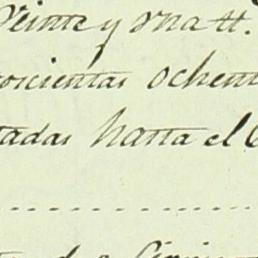 Veinte y vna tt.
oscientas ochen
tadas hasta el